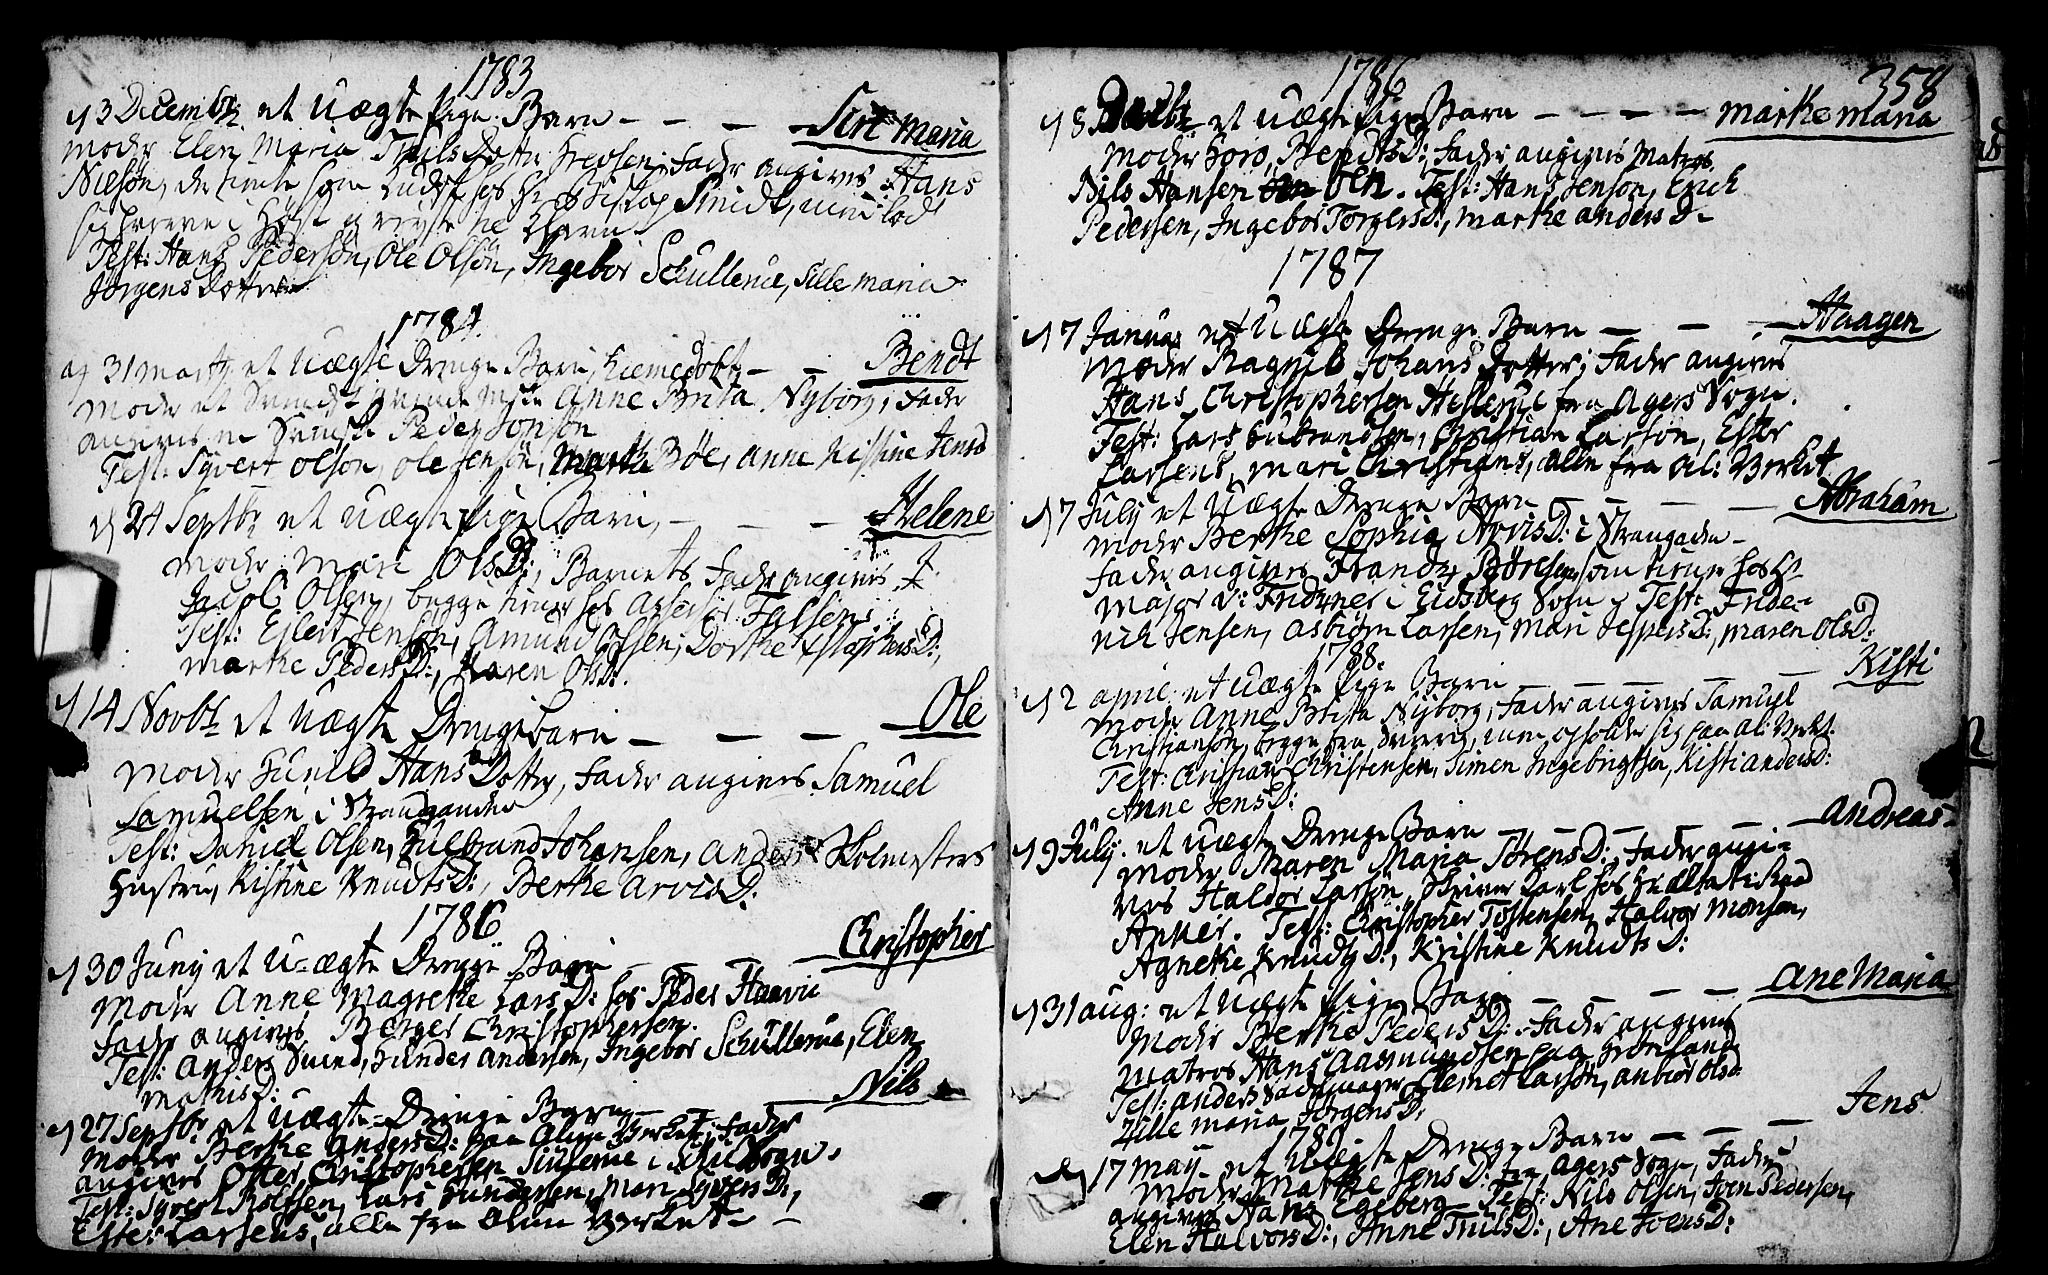 1783
d 13 Decembr et uægte Pige Barn - - - Siri Maria
Moder Elen Maria Truls Dotter Fader angives Hans
Nielsøn, der tiente som hos Hr Biskop Smidt, men lod
sig i Høst
Test: Hans Pedersøn, Ole Olsøn, Ingebor Schullerue, Sille Maria
Jørgens Dotter
1784
d 31 Marty et uægte Drenge Barn, hiemedøbt - - Bendt
Moder et Anne Brita Nyborg, Fader
angives en Svensk Peder Jonsøn
Test: Syvert Olsøn, Ole Jensøn, Marthe Bøe, Anne Kistine Jensd
d 24 Septbr et uægte Pige Barn, - - - Helene
Moder Mari OlsD:, Barnets Fader angives
Jacob Olsen, begge tiener hos Assessor Falsen
Test: Ejlert Jensen, Amund Olsen, Dorthe ChristophersD:,
Marthe PedersD:, Karen OlsD:
d 14 Novbr et uægte Drengebarn - - - Ole
Moder Gunild Hans Dotter, Fader angives Samuel
Samuelsen i Strandgaden
Test: Daniel Olsen, Gulbrand Johansen, Anders Holmesters
Hustru, Kistine KnudtsD:, Berthe ArvisD:
1786
d 30 Juny et u-ægte Drenge Barn - - - Christopher
Moder Anne Magrethe LarsD: hos Peder Haavie
Fader angives Børger Christophersen.
Test: Anders Svend, Gunder Andersen, Ingebor Schullerue, Elen
MathisD:
d 27 Septbr et uægte Drenge Barn - - - Nils
Moder Berthe AndersD: paa Alun Verket, Fader
angives Oster Christophersen i Sogn.
Test: Syvert Rolfsen, Lars Gundersen, Mari SyversD:,
Ester Larsens, alle fra Alun Verket -
1786 358
d 18 Decbr et uægte Pige Barn - - - - Marthe Maria
Moder Goro BendtsD: Fader angives Matros
Nils Hansen Oen. Test: Hans Jensøn, Erich
Pedersen, Ingebor TorgersD:, Marthe Anders D-
1787
d 17 Januar et uægte Drenge Barn - - - Haagen
Moder Ragnild Johans Dotter; Fader angives
Hans Christophersen Hellerud fra Agers Sogn.
Test: Lars Gulbrandsen, Christian Larsøn, Ester
Larsens, Mari Christians, alle fra Al: Verket
d 17 July et uægte Drenge Barn - - - Abraham
Moder Berthe Sophia ArvisD: i Strangaden -
Fader angives Frandtz Børesen, som tiener hos Hr
Major v: Fridzner i Eidsberg Sogn. Test: Frede-
rich Jensen, Asbiørn Larsen, Mari JespersD:, Maren OlsD:
1788.
d 12 April et uægte Pige Barn - - - Kisti
Moder Anne Britta Nyborg, Fader angives Samuel
Christiansøn, begge fra Sverrig, men opholder sig paa Al: Verket.
Test: Christian Christensen, Simen Ingebrigtsen, Kisti AndersD:
Anne JensD:
d 19 July et uægte Drenge Barn - - - Andreas
Moder Maren Maria SørensD:, Fader angi-
ves Haldor Larsøn, Skriver Carl hos Hr Etats Raad
Anker. Test: Christopher Tostensen, Halvor Monsøn,
Agnethe KnudtsD:, Kristine KnudtsD:
d 31 Aug: et uægte Pige Barn - - - - Ane Maria
Moder Berthe PedersD:, Fader angives
Matros Hans Aasmundsen paa Grønland
Test: Anders Sadelmager, Clemet Larsøn, Anbiør OlsD:
Zille Maria JørgensD:
1789
d 17 May et uægte Drenge Barn - - - Jens
Moder Marthe JensD: fra Agers Sogn, Fader
angives Hans Egeberg - Test: Nils Olsen, Joen Pedersen,
Elen HalvorsD:, Anne TrulsD:, Ane JoensD: